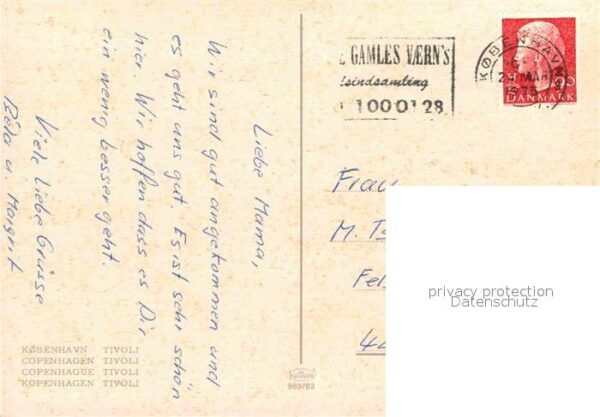 Liebe Mama,
Wir sind gut angekommen und
es geht uns gut. Es ist sehr schön
hier. Wir hoffen dass es Dir
ein wenig besser geht.
Viele liebe Grüsse
Béla u. Margrit
KØBENHAVN TIVOLI
COPENHAGEN TIVOLI
COPENHAGUE TIVOLI
KOPENHAGEN TIVOLI
989/83
GAMLES VÆRN'S
sindsamling
1000128
KØBENHAVN
MAR
90
DANMARK
Frau
M.
Fel
privacy protection
Datenschutz